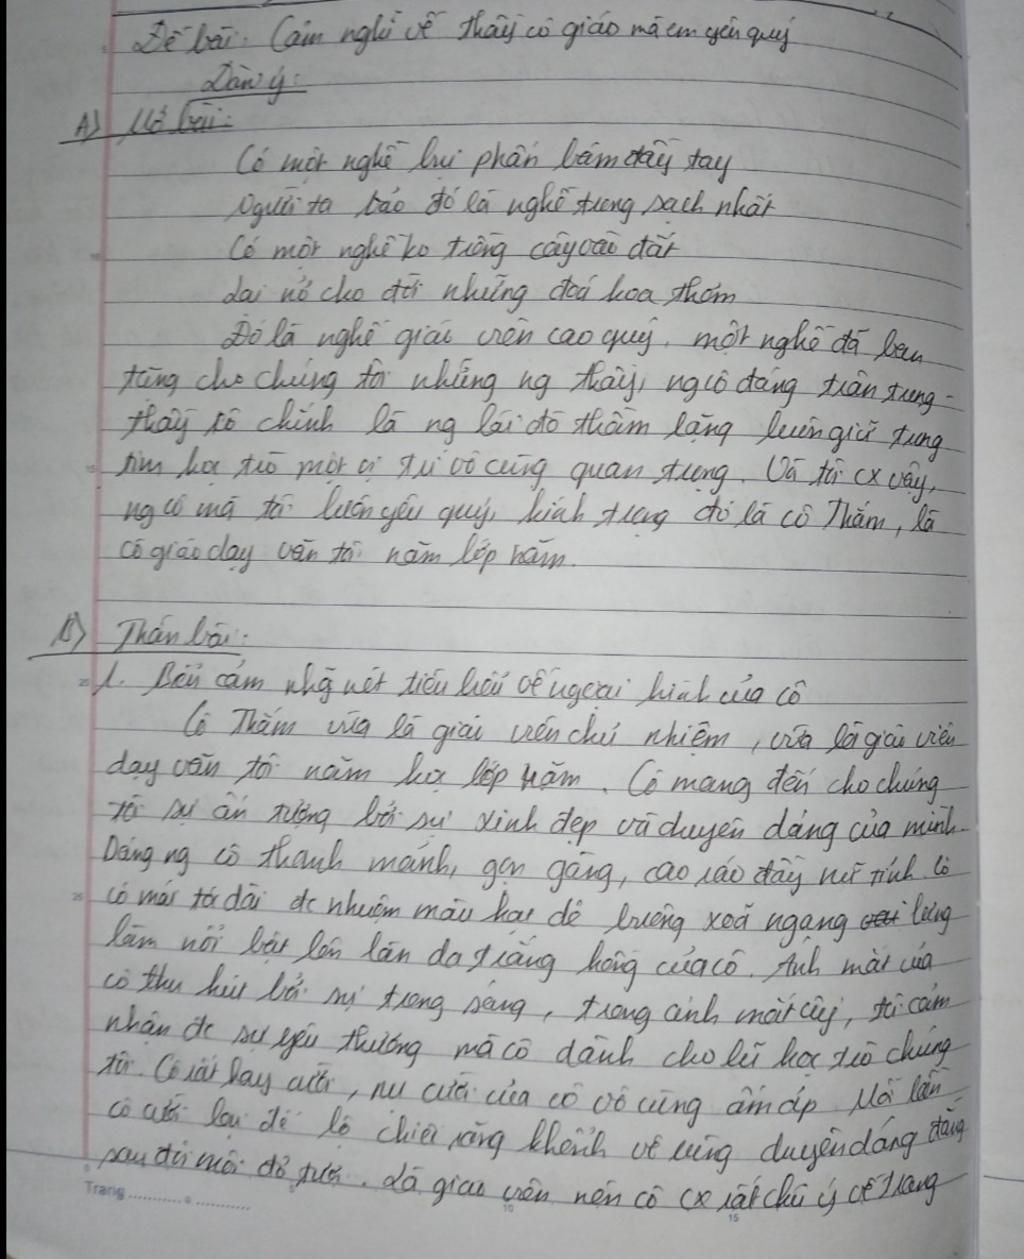 Đề bài: Cảm nghĩ về thầy cô giáo mà em yêu quý
Dàn ý:
A) Mở bài:
Có một nghề bụi phấn bám đầy tay
Người ta bảo đó là nghề trong sạch nhất
Có một nghề ko trồng cây vào đất
Lại nở cho đời những đoá hoa thơm
Đó là nghề giáo viên cao quý, một nghề đã ban
tặng cho chúng tôi những ng thầy, ng cô đáng trân trọng.
thầy cô chính là ng lái đò thầm lặng luôn giữ trong
tim học trò một vị trí vô cùng quan trọng. Và tôi cx vậy,
ng cô mà tôi luôn yêu quý, kính trọng đó là cô Thắm, là
cô giáo dạy văn tôi năm lớp năm.
B) Thân bài:
1. Biểu cảm nhg nét tiêu biểu về ngoại hình của cô
Cô Thắm vừa là giáo viên chủ nhiệm, vừa là giáo viên
dạy văn tôi năm học lớp năm. Cô mang đến cho chúng
tôi sự ấn tượng bởi sự xinh đẹp và duyên dáng của mình.
Dáng ng cô thanh mảnh, gọn gàng, cao ráo đầy nữ tính. Cô
có mái tóc dài đc nhuộm màu hạt dẻ buông xoã ngang lưng
làm nổi bật lên làn da trắng hồng của cô. Ánh mắt của
cô thu hút bởi sự trong sáng, trong ánh mắt ấy, tôi cảm
nhận đc sự yêu thương mà cô dành cho lũ học trò chúng
tôi. Cô rất hay cười, nụ cười của cô vô cùng ấm áp. Mỗi lần
cô cười lại để lộ chiếc răng khểnh vô cùng duyên dáng đằng
sau đôi môi đỏ tươi. Là giáo viên nên cô cx rất chú ý về trang
Trang